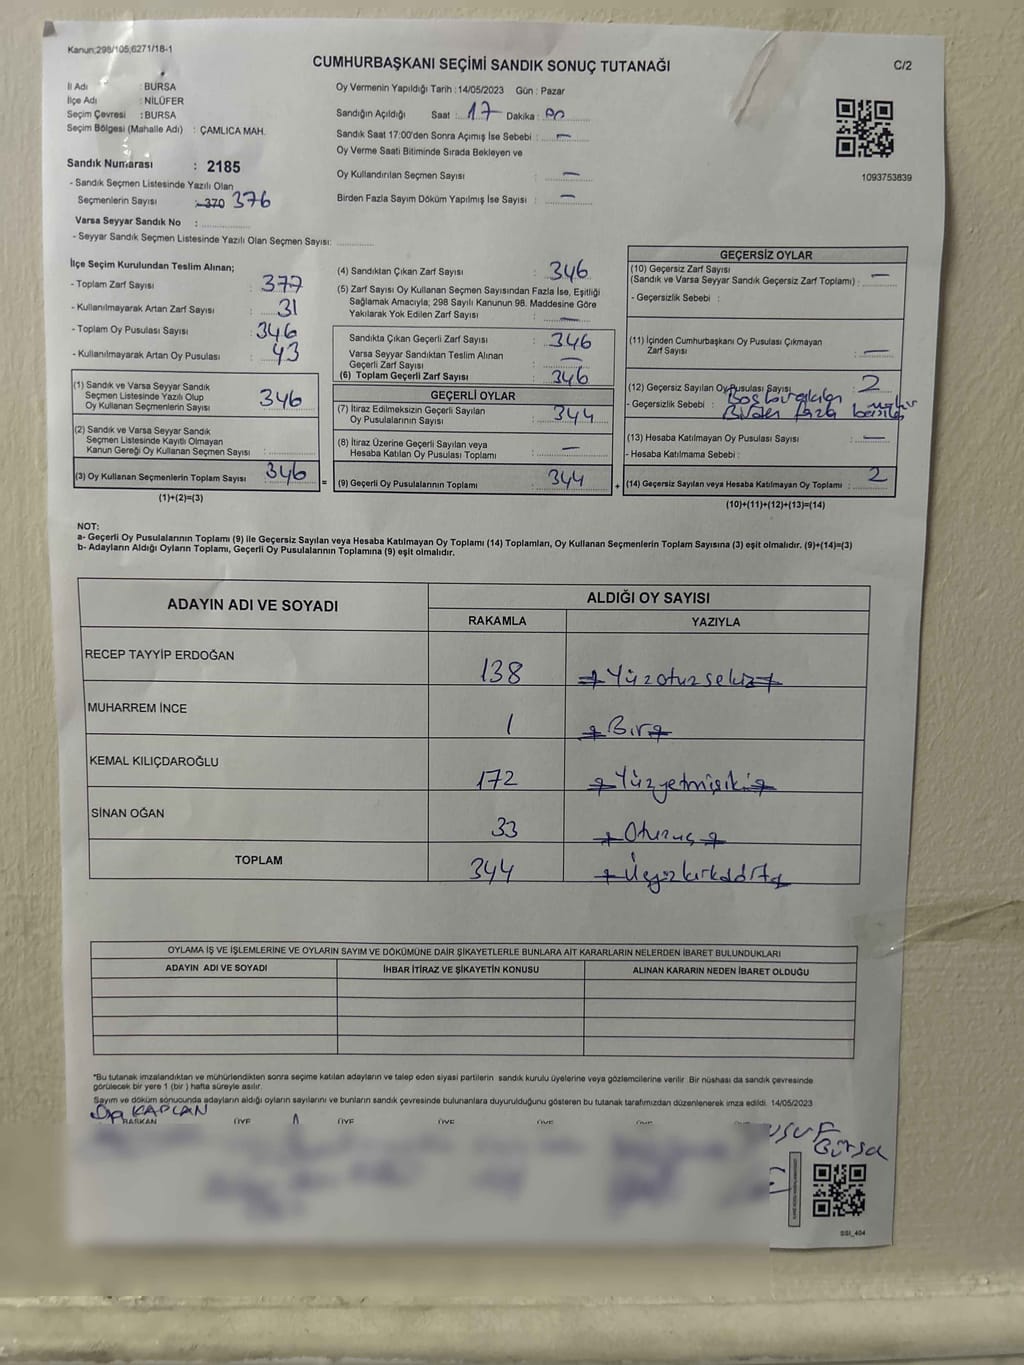 Kanun;298/105;6271/18-1
CUMHURBAŞKANI SEÇİMİ SANDIK SONUÇ TUTANAĞI
C/2
İl Adı : BURSA
İlçe Adı : NİLÜFER
Seçim Çevresi : BURSA
Seçim Bölgesi (Mahalle Adı) : ÇAMLICA MAH.
Sandık Numarası : 2185
- Sandık Seçmen Listesinde Yazılı Olan
Seçmenlerin Sayısı : 370 376
Varsa Seyyar Sandık No :
- Seyyar Sandık Seçmen Listesinde Yazılı Olan Seçmen Sayısı:
Oy Vermenin Yapıldığı Tarih : 14/05/2023 Gün : Pazar
Sandığın Açıldığı Saat : 17 Dakika : 00
Sandık Saat 17:00'den Sonra Açımış İse Sebebi : —
Oy Verme Saati Bitiminde Sırada Bekleyen ve
Oy Kullandırılan Seçmen Sayısı : —
Birden Fazla Sayım Döküm Yapılmış İse Sayısı : —
1093753839
İlçe Seçim Kurulundan Teslim Alınan;
- Toplam Zarf Sayısı : 377
- Kullanılmayarak Artan Zarf Sayısı : 31
- Toplam Oy Pusulası Sayısı : 346
- Kullanılmayarak Artan Oy Pusulası : 43
(1) Sandık ve Varsa Seyyar Sandık
Seçmen Listesinde Yazılı Olup
Oy Kullanan Seçmenlerin Sayısı : 346
(2) Sandık ve Varsa Seyyar Sandık
Seçmen Listesinde Kayıtlı Olmayan
Kanun Gereği Oy Kullanan Seçmen Sayısı :
(3) Oy Kullanan Seçmenlerin Toplam Sayısı : 346 =
(1)+(2)=(3)
(4) Sandıktan Çıkan Zarf Sayısı : 346
(5) Zarf Sayısı Oy Kullanan Seçmen Sayısından Fazla İse, Eşitliği
Sağlamak Amacıyla; 298 Sayılı Kanunun 98. Maddesine Göre
Yakılarak Yok Edilen Zarf Sayısı : —
Sandıkta Çıkan Geçerli Zarf Sayısı : 346
Varsa Seyyar Sandıktan Teslim Alınan
Geçerli Zarf Sayısı : —
(6) Toplam Geçerli Zarf Sayısı : 346
GEÇERLİ OYLAR
(7) İtiraz Edilmeksizin Geçerli Sayılan
Oy Pusulalarının Sayısı : 344
(8) İtiraz Üzerine Geçerli Sayılan veya
Hesaba Katılan Oy Pusulası Toplamı : —
(9) Geçerli Oy Pusulalarının Toplamı : 344 +
GEÇERSİZ OYLAR
(10) Geçersiz Zarf Sayısı
(Sandık ve Varsa Seyyar Sandık Geçersiz Zarf Toplamı) : —
- Geçersizlik Sebebi :
(11) İçinden Cumhurbaşkanı Oy Pusulası Çıkmayan
Zarf Sayısı : —
(12) Geçersiz Sayılan Oy Pusulası Sayısı : 2
- Geçersizlik Sebebi : Birden fazla
(13) Hesaba Katılmayan Oy Pusulası Sayısı : —
- Hesaba Katılmama Sebebi :
(14) Geçersiz Sayılan veya Hesaba Katılmayan Oy Toplamı : 2
(10)+(11)+(12)+(13)=(14)
NOT:
a- Geçerli Oy Pusulalarının Toplamı (9) ile Geçersiz Sayılan veya Hesaba Katılmayan Oy Toplamı (14) Toplamları, Oy Kullanan Seçmenlerin Toplam Sayısına (3) eşit olmalıdır. (9)+(14)=(3)
b- Adayların Aldığı Oyların Toplamı, Geçerli Oy Pusulalarının Toplamına (9) eşit olmalıdır.
ADAYIN ADI VE SOYADI
ALDIĞI OY SAYISI
RAKAMLA YAZIYLA
RECEP TAYYİP ERDOĞAN 138 Yüzotuzsekiz
MUHARREM İNCE 1 Bir
KEMAL KILIÇDAROĞLU 172 Yüzyetmişiki
SİNAN OĞAN 33 Otuzüç
TOPLAM 344 Üçyüzkırkdört
OYLAMA İŞ VE İŞLEMLERİNE VE OYLARIN SAYIM VE DÖKÜMÜNE DAİR ŞİKAYETLERLE BUNLARA AİT KARARLARIN NELERDEN İBARET BULUNDUKLARI
ADAYIN ADI VE SOYADI İHBAR İTİRAZ VE ŞİKAYETİN KONUSU ALINAN KARARIN NEDEN İBARET OLDUĞU
*Bu tutanak imzalandıktan ve mühürlendikten sonra seçime katılan adayların ve talep eden siyasi partilerin sandık kurulu üyelerine veya gözlemcilerine verilir. Bir nüshası da sandık çevresinde
görülecek bir yere 1 (bir ) hafta süreyle asılır.
Sayım ve döküm sonucunda adayların aldığı oyların sayılarını ve bunların sandık çevresinde bulunanlara duyurulduğunu gösteren bu tutanak tarafımızdan düzenlenerek imza edildi. 14/05/2023
KAPLAN
BAŞKAN ÜYE ÜYE ÜYE ÜYE ÜYE
Bursa
SSI_404